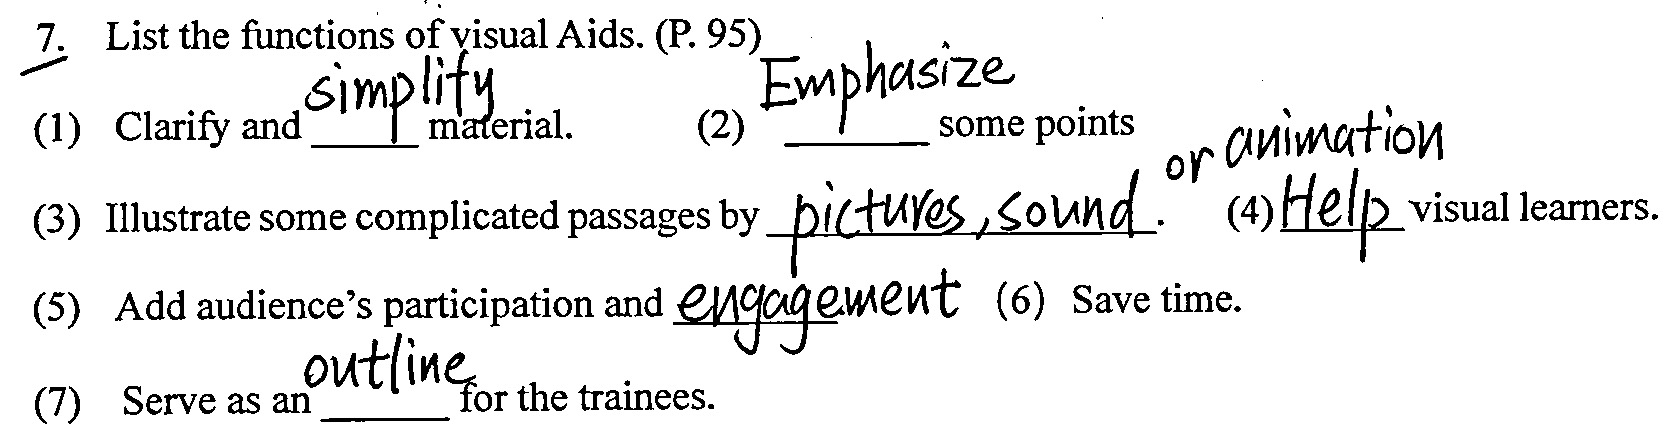 7. List the functions of visual Aids. (P. 95)
(1) Clarify and simplify material. (2) Emphasize some points
(3) Illustrate some complicated passages by pictures, sound or animation. (4) Help visual learners.
(5) Add audience's participation and engagement (6) Save time.
(7) Serve as an outline for the trainees.